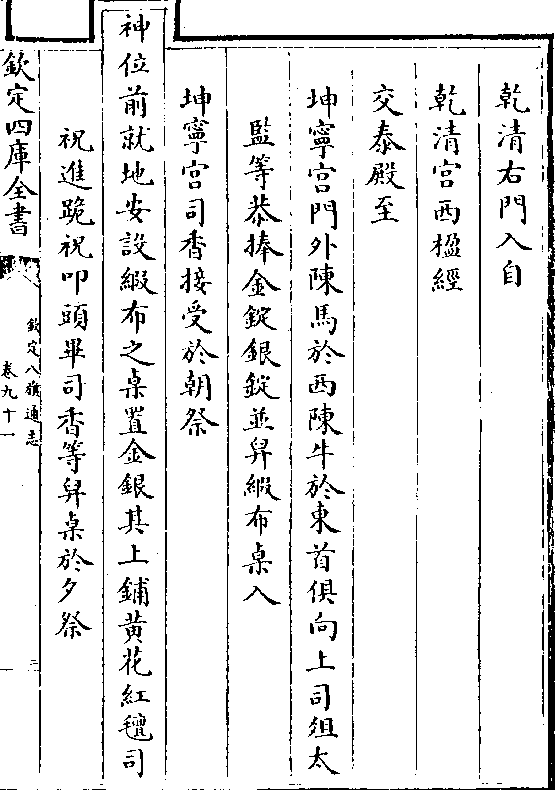 乾清右門入自
乾清宫西楹經
交泰殿至
坤寧宫門外陳馬於西陳牛於東首俱向上司俎太
監等恭捧金錠銀錠並舁緞布桌入
坤寧宫司香接受於朝祭
神位前就地安設緞布之桌置金銀其上鋪黄花紅氊司
祝進跪祝叩頭畢司香等舁桌於夕祭
欽定四庫全書
欽定八旗通志
卷九十一
二